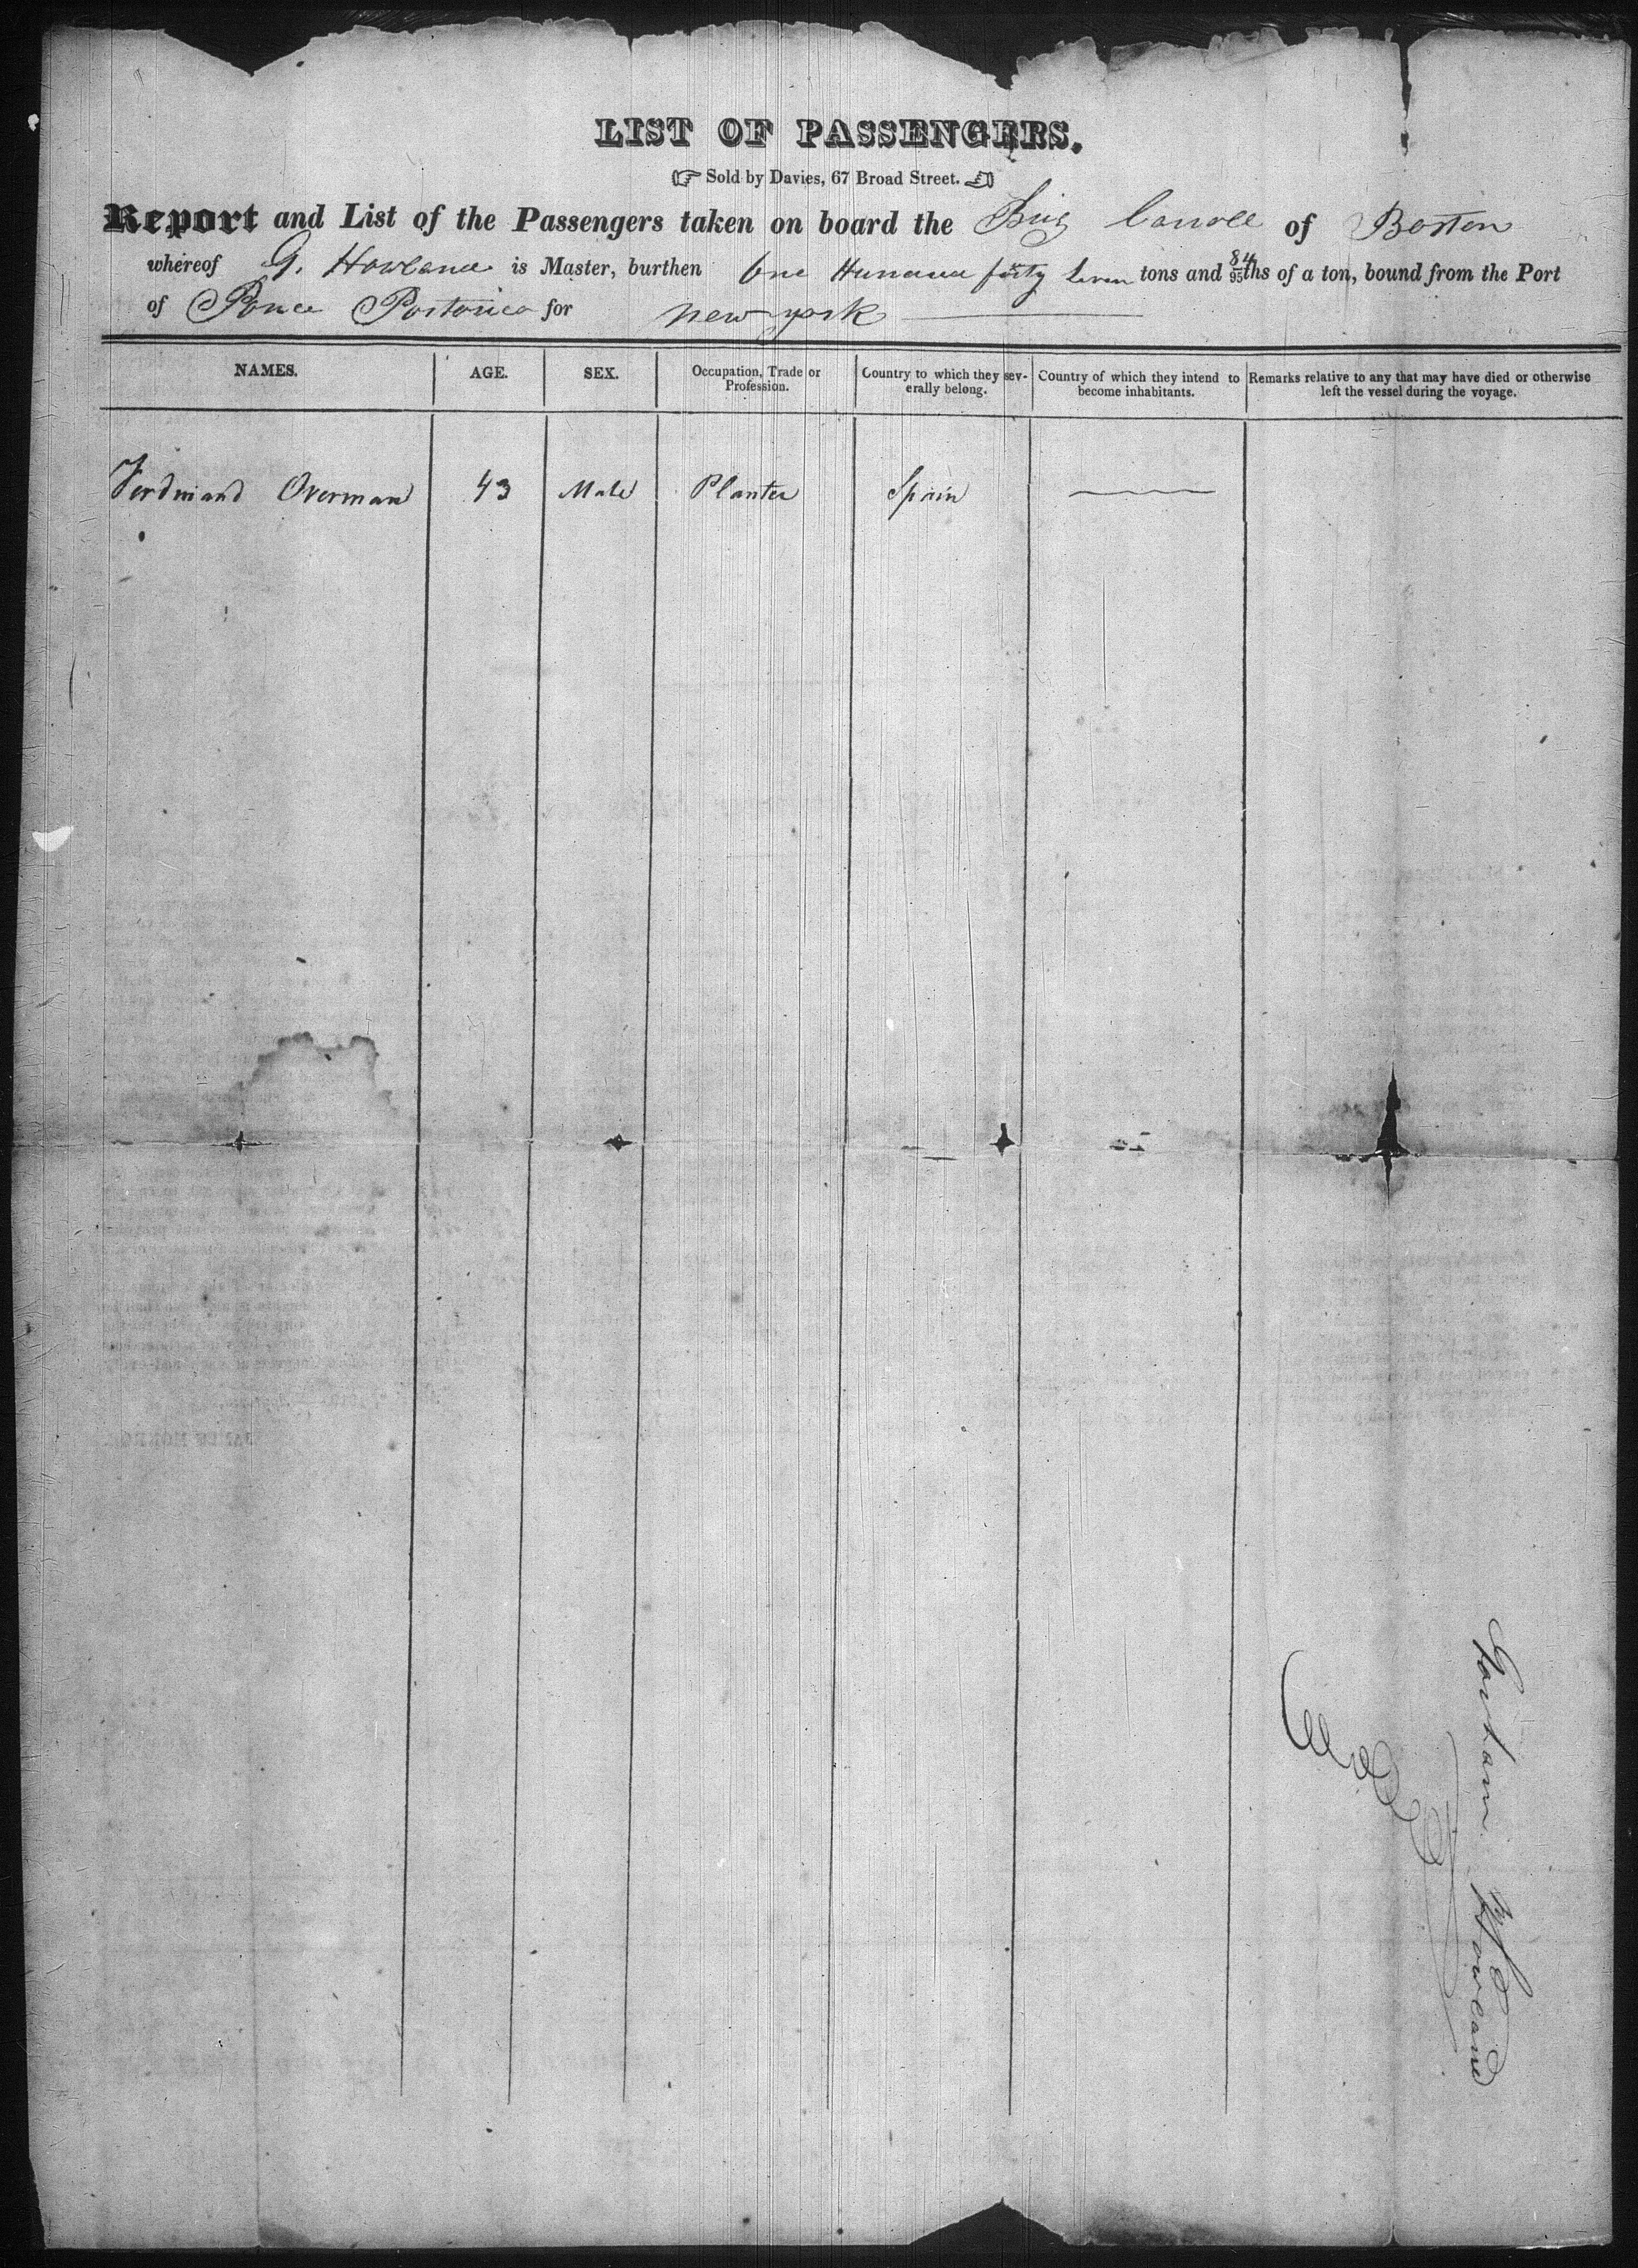 LIST OF PASSENGERS.
Sold by Davies, 67 Broad Street.
Report and List of the Passengers taken on board the Brig Carroll of Boston
whereof G. Howland is Master, burthen One Hundred forty Seven tons and 84/95ths of a ton, bound from the Port
of Ponce Portorico for New york
NAMES. AGE. SEX. Occupation, Trade or Profession. Country to which they severally belong. Country of which they intend to become inhabitants. Remarks relative to any that may have died or otherwise left the vessel during the voyage.
Ferdinand Overman 43 Male Planter Spain
Gorham Howland